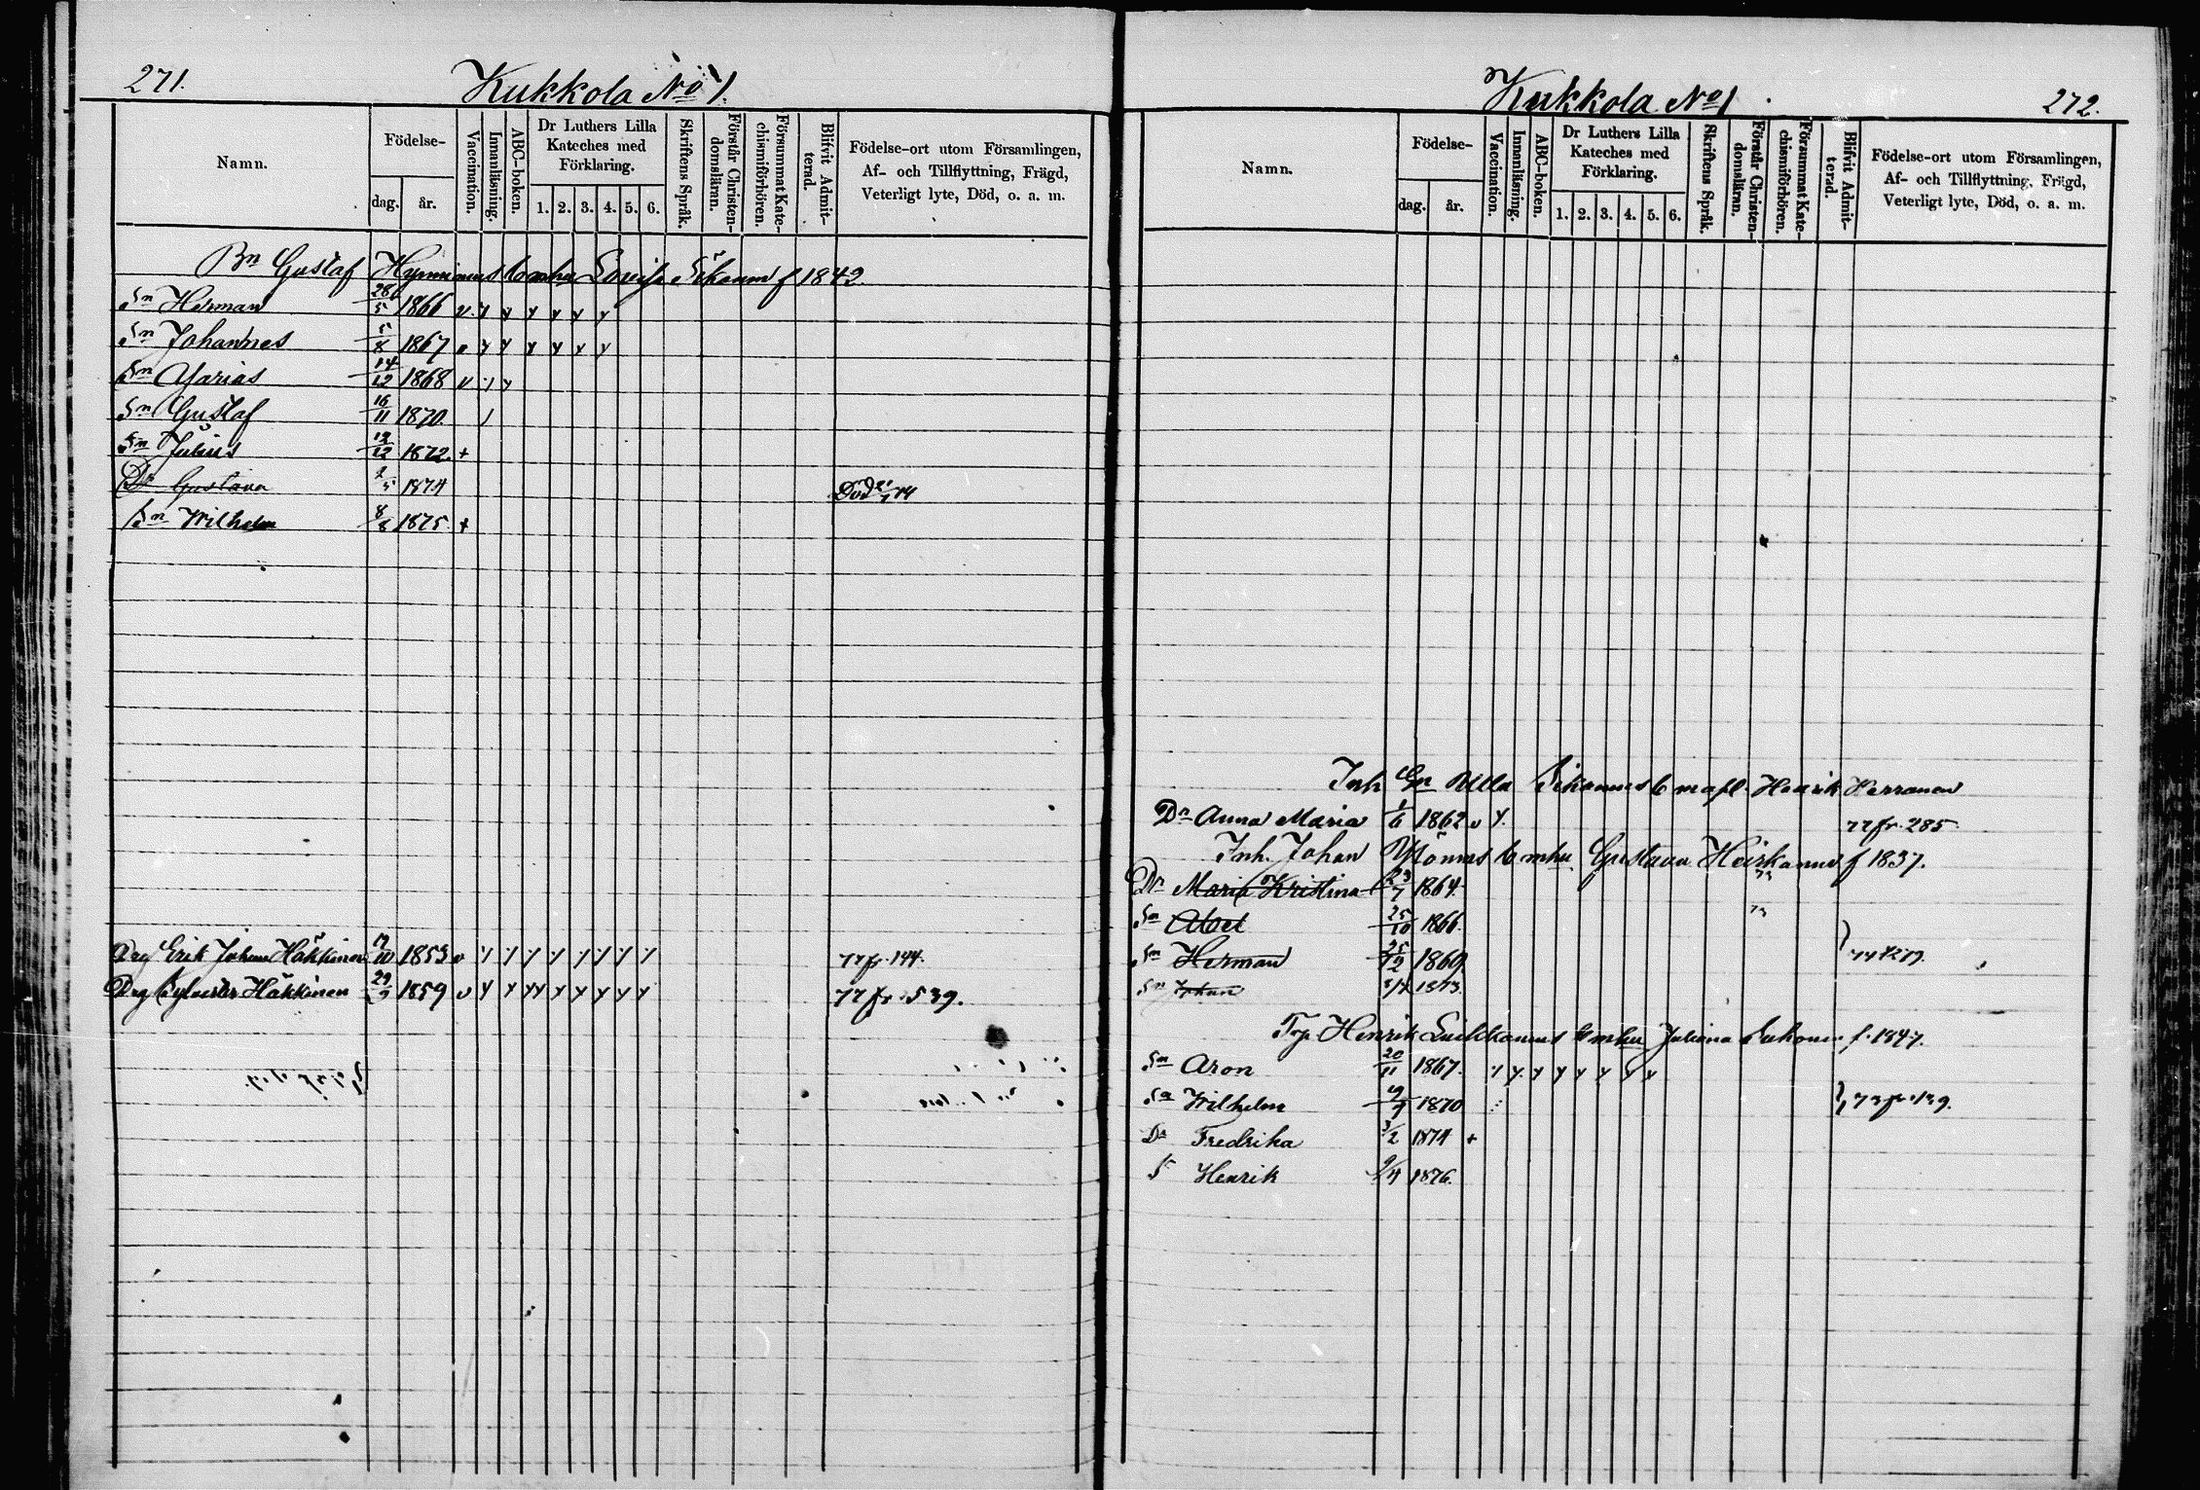 271.
Kukkola No 1.
Namn.
Födelse-
dag.
år.
Vaccination.
Innanläsning.
ABC-boken.
Dr Luthers Lilla
Kateches med
Förklaring.
1. 2. 3. 4. 5. 6.
Skriftens Språk.
Förstår Christen-
domsläran.
Försummat Kate-
chismiförhören.
Blifvit Admit-
terad.
Födelse-ort utom Församlingen,
Af- och Tillflyttning, Frägd,
Veterligt lyte, Död, o. a. m.
Bn Gustaf Hynninens b mhu Lovisa f 1842.
Sn Herman 28/5 1866 v y y y y y y
Sn Johannes 5/8 1867 y y y y y y
Sn 14/12 1868 v y y
Sn Gustaf 16/11 1870
Sn Julius 12/12 1872 +
Dr Gustava 1874 Död
Sn Wilhelm 8/8 1875 +
Drg Erik Johan Häkkinen 1853 v y y y y y y y y 77 fr. 144.
Drg Sylvester Häkkinen 29/9 1859 v y y y y y y y y y 77 fr 539.
Kukkola No 1
272.
Namn.
Födelse-
dag.
år.
Vaccination.
Innanläsning.
ABC-boken.
Dr Luthers Lilla
Kateches med
Förklaring.
1. 2. 3. 4. 5. 6.
Skriftens Språk.
Förstår Christen-
domsläran.
Försummat Kate-
chismiförhören.
Blifvit Admit-
terad.
Födelse-ort utom Församlingen,
Af- och Tillflyttning, Frägd,
Veterligt lyte, Död, o. a. m.
Inh Gn Ulla b m afl. Henrik Herranen
Dr Anna Maria 1/6 1862 v y. 77 fr. 285
Inh. Johan b mhu Gustava f 1837.
Dr Maria Kristina 23/7 1864
Sn Abel 25/10 1866.
Sn Herman 25/12 1869
Sn Johan 1873.
Trp. Henrik b mhu Juliana f. 1847.
Sn Aron 20/11 1867. y y y y y y y y
Sn Wilhelm 1870 73 fr. 139.
Dr Fredrika 3/2 1874 +
S Henrik 9/4 1876.